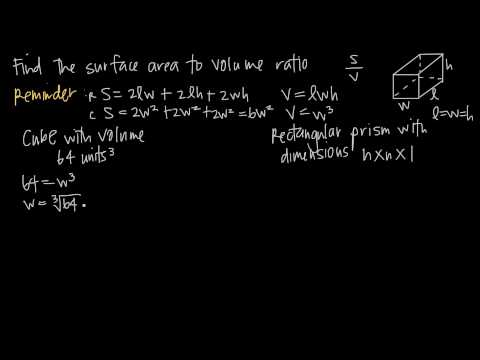 Find the surface area to volume ratio S/V
Reminder: R S = 2lw + 2lh + 2wh V = lwh
C S = 2w² + 2w² + 2w² = 6w² V = w³
h
w l
l=w=h
Cube with volume
64 units³
64 = w³
w = ∛64
Rectangular prism with
dimensions n×n×1